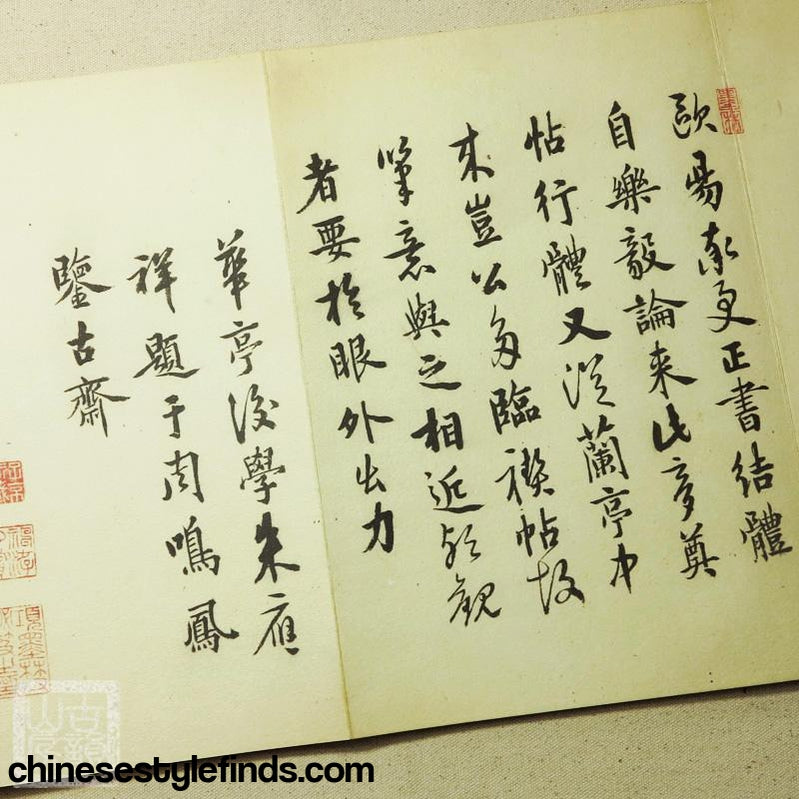 歐昜率更正書結體
自樂毅論來此夢奠
帖行體又從蘭亭中
來豈公多臨禊帖故
筆意與之相近觀
者要於眼外出力
華亭後學朱應
祥題于周鳴鳳
鑒古齋
chinesestylefinds.com